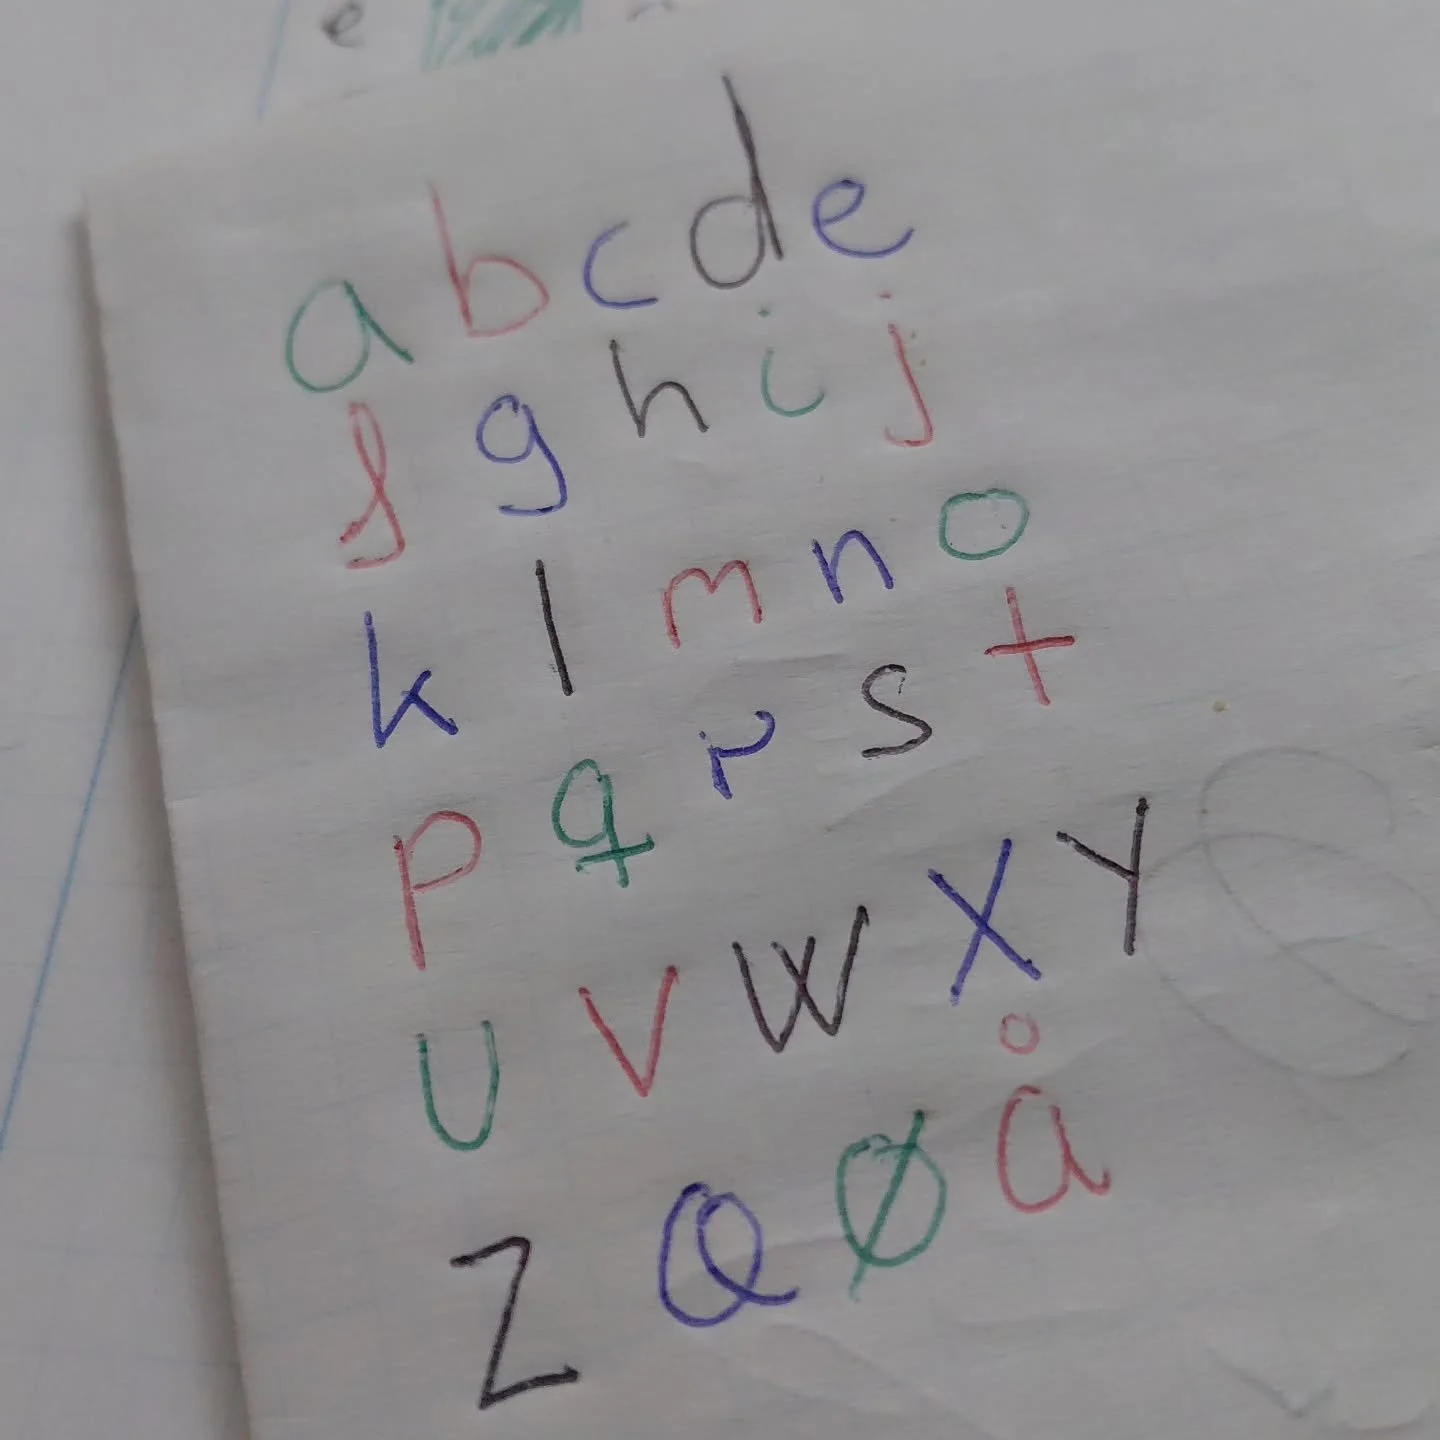 e
a b c d e
f g h i j
k l m n o
p q r s t
u v w x y
z æ ø å